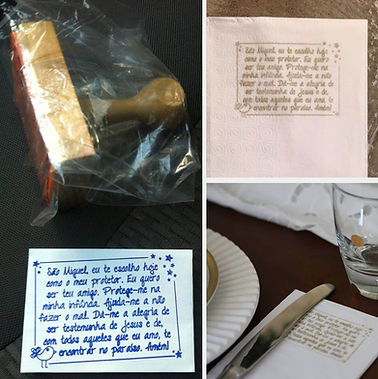 São Miguel, eu te escolho hoje
como o meu protetor. Eu quero
ser teu amigo. Protege-me na
minha infância. Ajuda-me a não
fazer o mal. Dá-me a alegria de
ser testemunha de Jesus e de,
com todos aqueles que eu ano, te
encontrar no paraíso. Amém!
São Miguel, eu te escolho hoje
como o meu protetor. Eu quero
ser teu amigo. Protege-me na
minha infância. Ajuda-me a não
fazer o mal. Dá-me a alegria de
ser testemunha de Jesus e de,
com todos aqueles que eu ano, te
encontrar no paraíso. Amém!